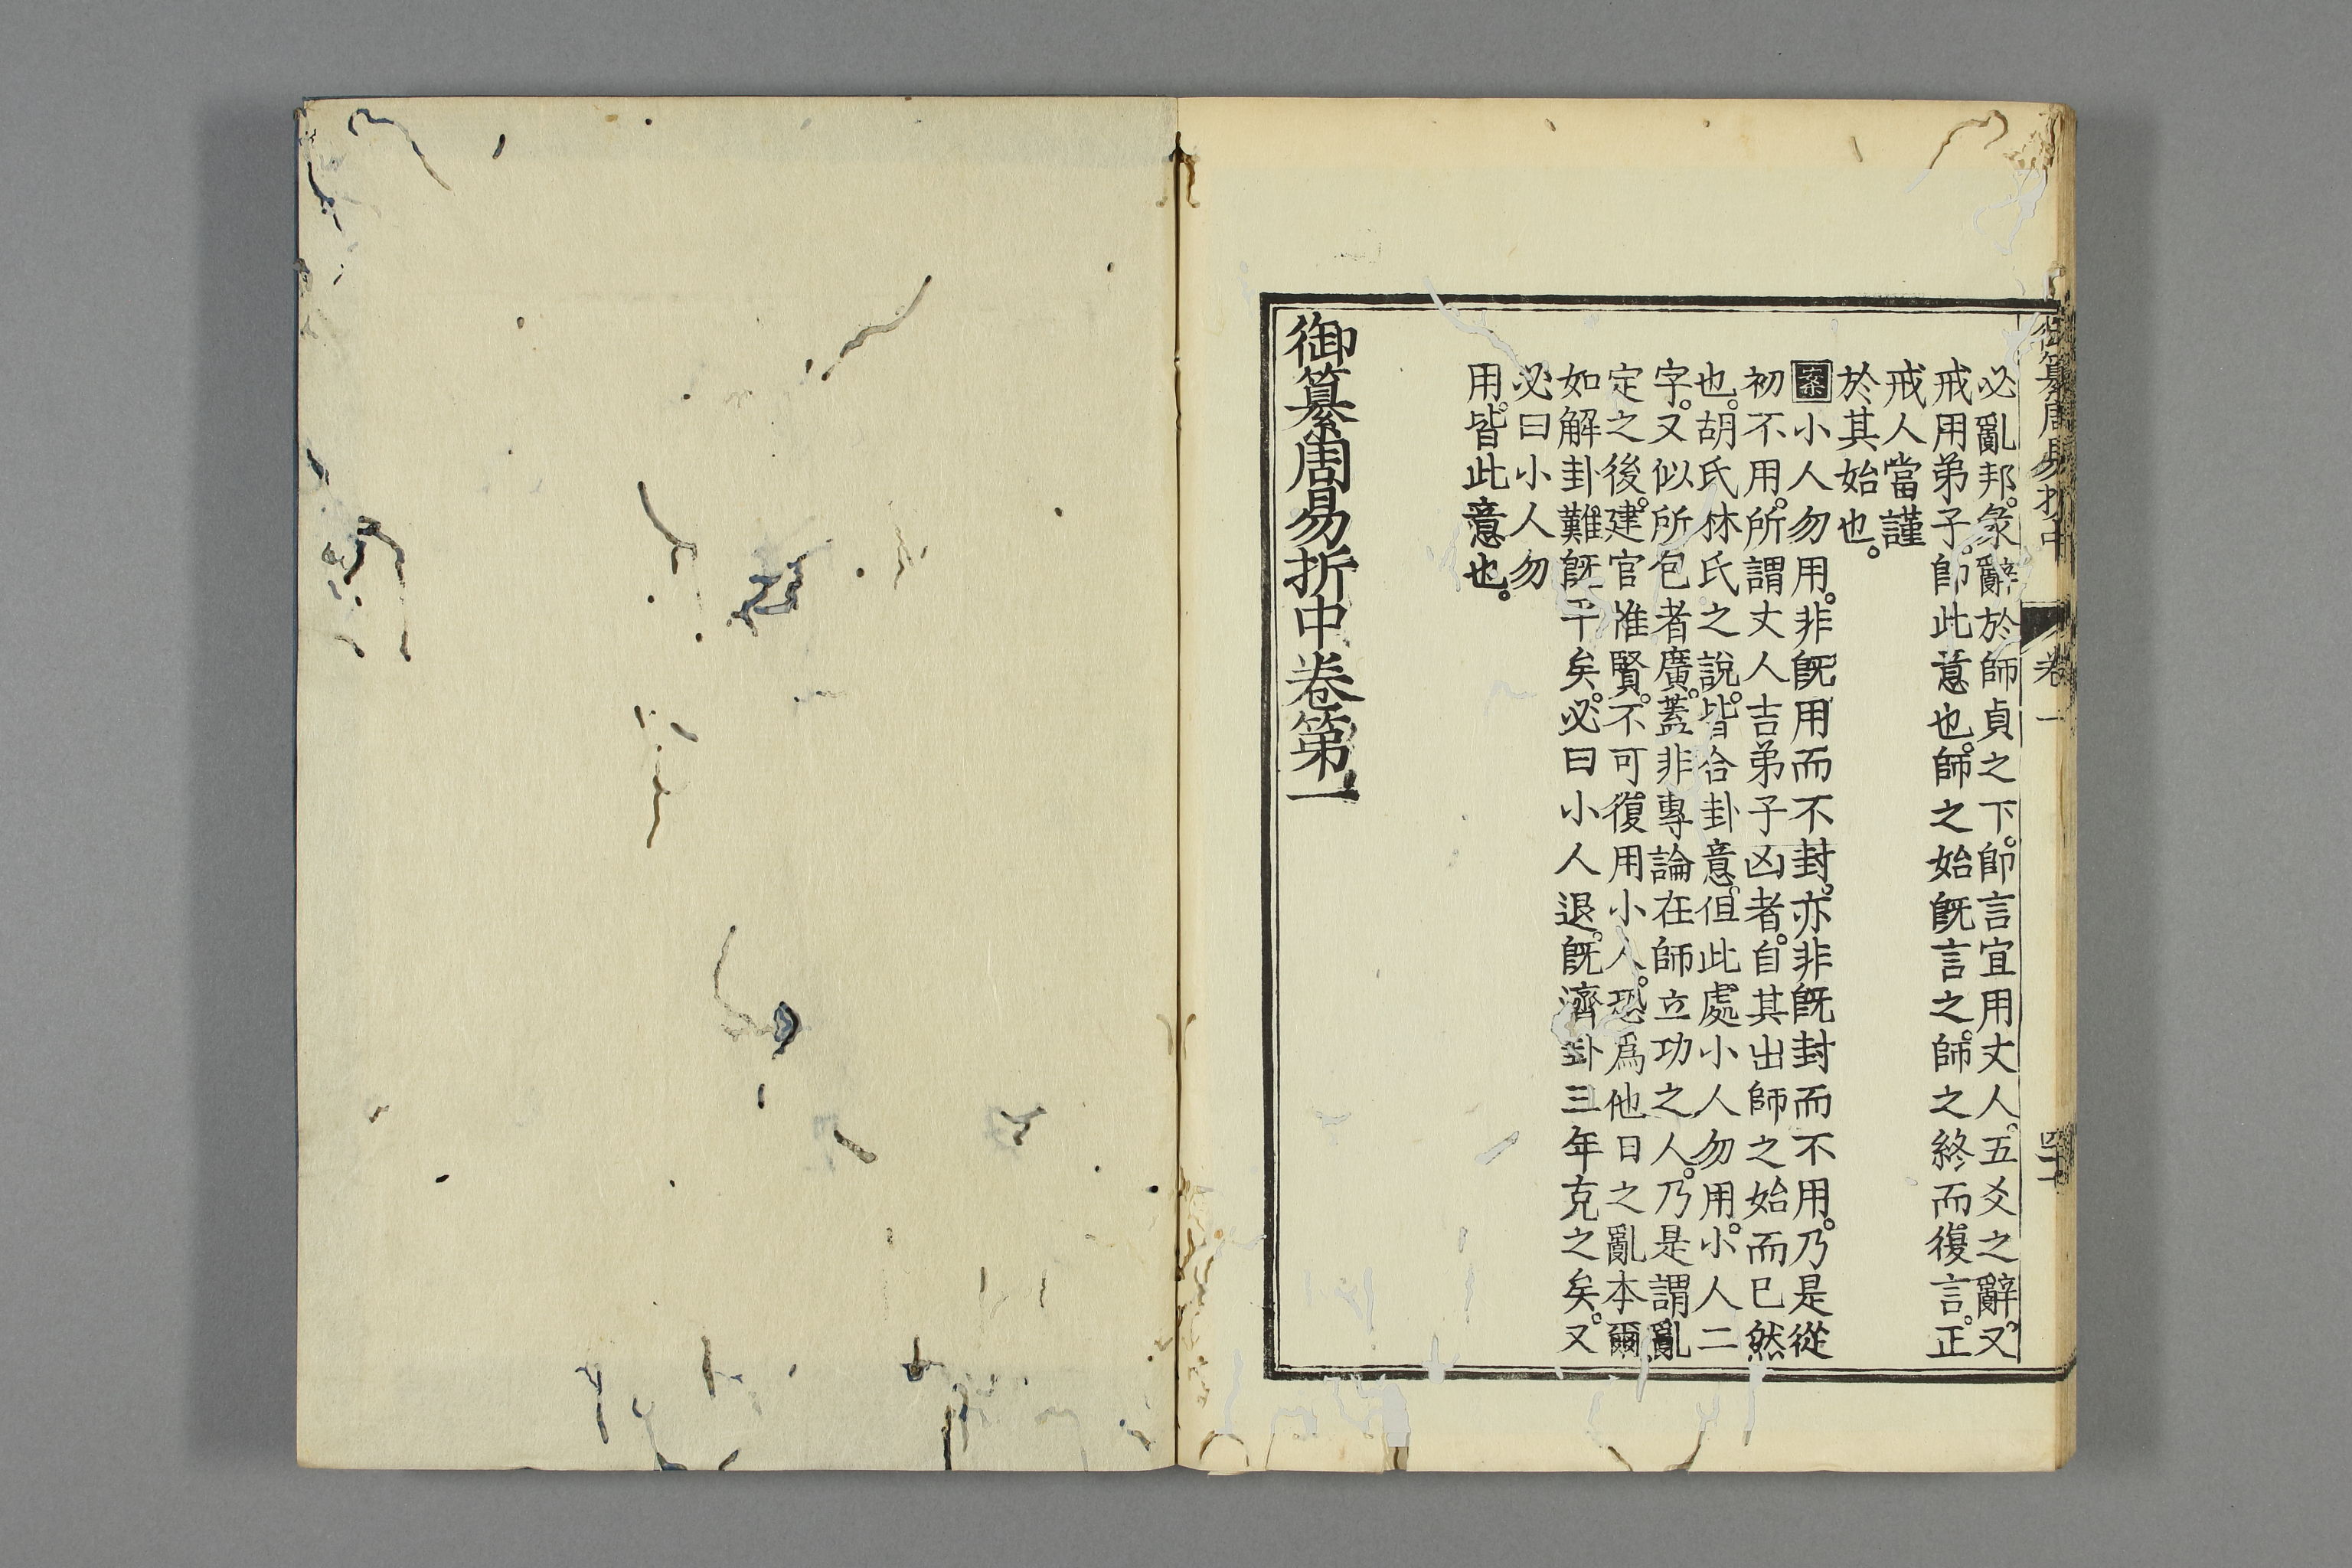 御纂周易折中 卷一
必亂邦。彖辭於師貞之下。卽言宜用丈人。五爻之辭。又
戒用弟子。卽此意也。師之始旣言之。師之終而復言。正
戒人當謹
於其始也。
案小人勿用。非旣用而不封。亦非旣封而不用。乃是從
初不用。所謂丈人吉弟子凶者。自其出師之始而已然
也。胡氏林氏之說。皆合卦意。但此處小人勿用。小人二
字。又似所包者廣。蓋非專論在師立功之人。乃是謂亂
定之後。建官惟賢。不可復用小人。恐爲他日之亂本爾
如解卦難旣平矣。必曰小人退。旣濟卦三年克之矣。又
必曰小人勿
用。皆此意也。
御纂周易折中卷第一